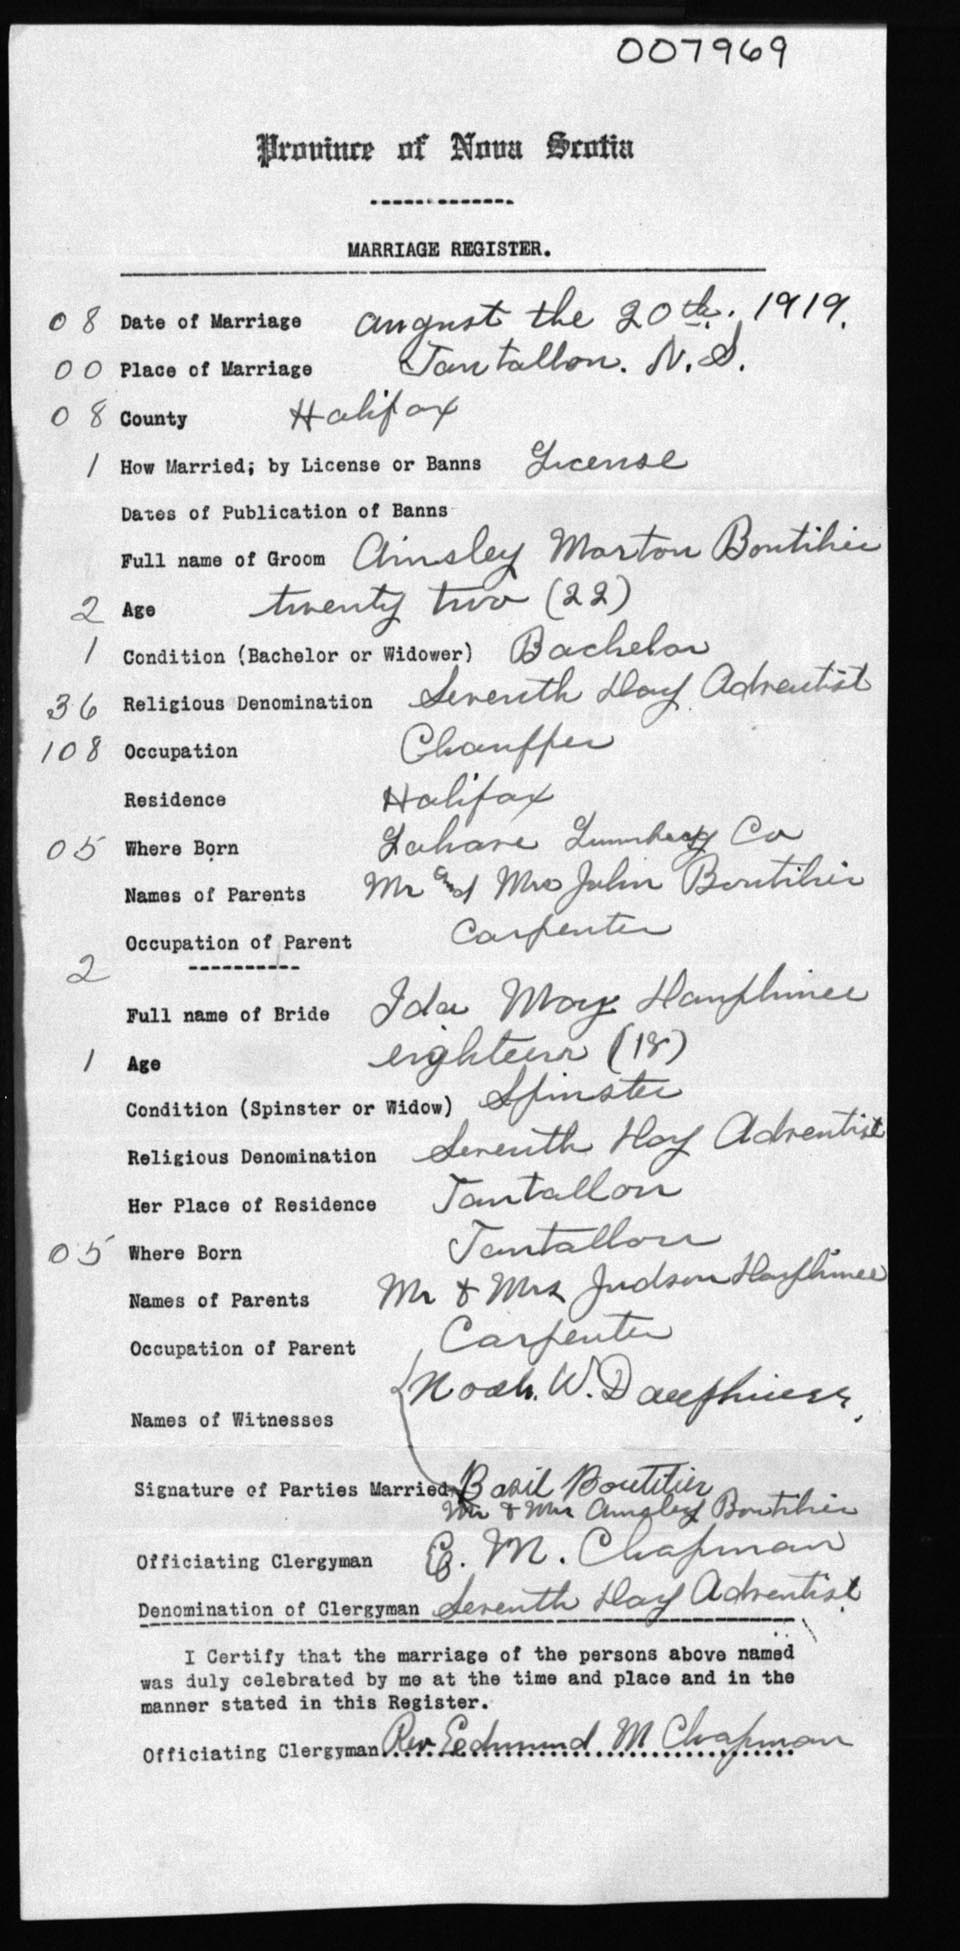 007969
Province of Nova Scotia
MARRIAGE REGISTER.
08 Date of Marriage August the 20th. 1919.
00 Place of Marriage Tantallon. N.S.
08 County Halifax
1 How Married; by License or Banns License
Dates of Publication of Banns
Full name of Groom Ainsley Morton Boutilier
2 Age twenty two (22)
1 Condition (Bachelor or Widower) Bachelor
36 Religious Denomination Seventh Day Adventist
108 Occupation Chauffer
Residence Halifax
05 Where Born Lahave Lunenburg Co
Names of Parents Mr and Mrs John Boutilier
Occupation of Parent Carpenter
2
Full name of Bride Ida May Dauphinee
1 Age eighteen (18)
Condition (Spinster or Widow) Spinster
Religious Denomination Seventh Day Adventist
Her Place of Residence Tantallon
05 Where Born Tantallon
Names of Parents Mr & Mrs Judson Dauphinee
Occupation of Parent Carpenter
Noah. W. Dauphinee
Names of Witnesses
Signature of Parties Married Basil Boutilier
Mr & Mrs Ainsley Boutilier
Officiating Clergyman E. M. Chapman
Denomination of Clergyman Seventh Day Adventist
I Certify that the marriage of the persons above named
was duly celebrated by me at the time and place and in the
manner stated in this Register.
Officiating Clergyman Rev Edmund M Chapman